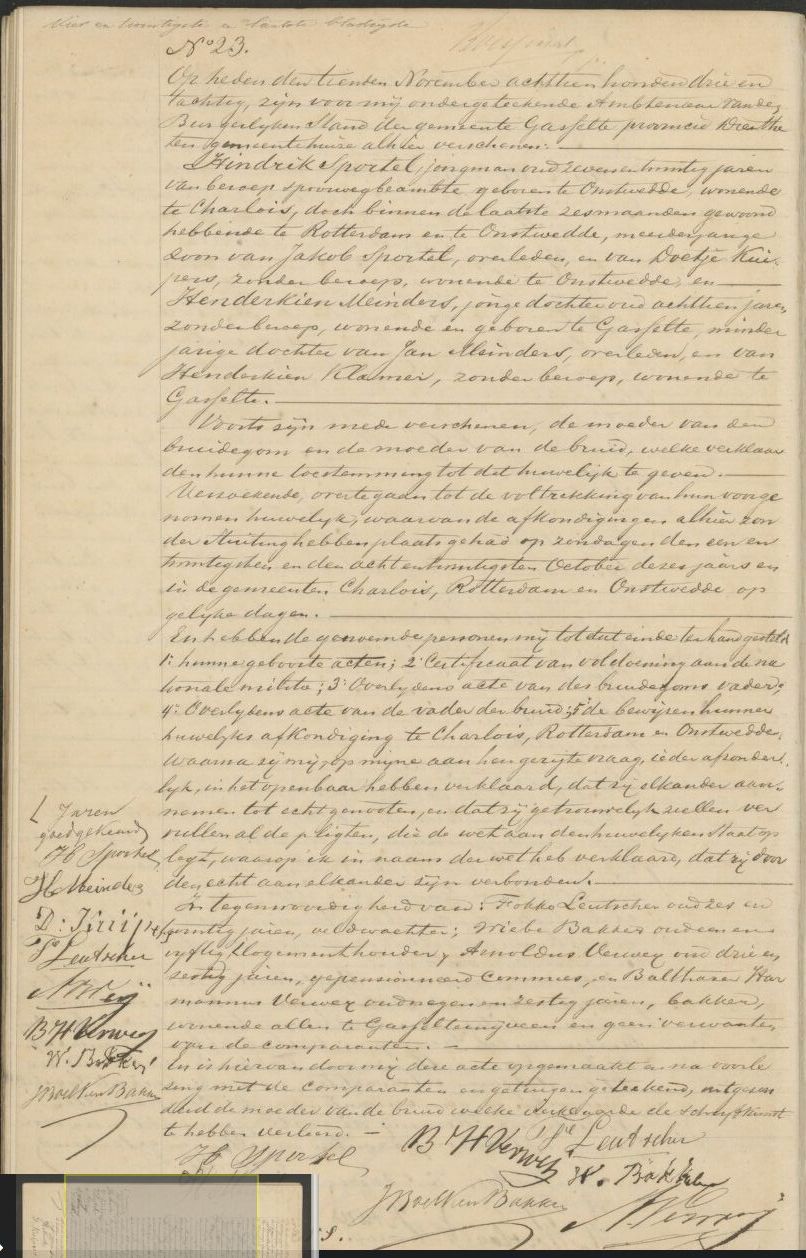 Vier en twintigste en laatste bladzijde
N° 23.
Op heden den tienden November achttienhonderd drie en
tachtig, zijn voor mij ondergeteekende Ambtenaar van den
Burgerlijken Stand der gemeente Gasselte provincie Drenthe
ten gemeentehuize alhier verschenen:
Hindrik Sportel, jongman oud zevenentwintig jaren
van beroep spoorwegbeambte geboren te Onstwedde, wonende
te Charlois, doch binnen de laatste zes maanden gewoond
hebbende te Rotterdam en te Onstwedde, meerderjarige
zoon van Jakob Sportel, overleden, en van Doetje Kui-
pers, zonder beroep, wonende te Onstwedde, en
Henderkien Meinders, jonge dochter oud achttien jaren,
zonder beroep, wonende en geboren te Gasselte, minder
jarige dochter van Jan Meinders, overleden, en van
Henderkien Klamer, zonder beroep, wonende te
Gasselte.
Voorts zijn mede verschenen, de moeder van den
bruidegom en de moeder van de bruid, welke verklaar
den hunne toestemming tot dit huwelijk te geven.
Verzoekende, overtegaan tot de voltrekking van hun voorge
nomen huwelijk, waarvan de afkondigingen alhier zon
der stuiting hebben plaats gehad op zondagen den een en
twintigsten en den acht en twintigsten October dezes jaars en
in de gemeenten Charlois, Rotterdam en Onstwedde op
gelijke dagen.
En hebben de genoemde personen mij tot dat einde ter hand gesteld
1: hunne geboorte acten; 2: Certificaat van voldoening aan de na
tionale militie; 3: Overlijdens acte van des bruidegoms vader;
4: Overlijdens acte van de vader der bruid; 5: de bewijzen hunner
huwelijks afkondiging te Charlois, Rotterdam en Onstwedde,
Waarna zij mij, op mijne aan hen gerigte vraag, ieder afzonder-
lijk, in het openbaar hebben verklaard, dat zij elkander aan-
nemen tot echtgenooten, en dat zij getrouwelijk zullen ver
vullen al de pligten, die de wet aan den huwelijken staat op
legt, waarop ik in naam der wet heb verklaard, dat zij door
den echt aan elkander zijn verbonden.
In tegenwoordigheid van: Fokko Leutscher oud zes en
twintig jaren, veldwachter; Wiebe Bakker oud een en
vijftig, logementhouder, Arnoldus Verweij oud drie en
zestig jaren, gepensionneerd Commies, en Balthazar Har
mannus Verweij oud negen en zestig jaren, bakker,
wonende allen te Gasselternijveen en geen verwanten
van de comparanten.
En is hiervan door mij deze acte opgemaakt en na voorle
zing met de comparanten en getuigen geteekend, uitgezon
derd de moeder van de bruid welke verklaarde de schrijfkunst
te hebben verleerd.
[ Jaren
goedgekeurd
H Sportel
H Meinders
D: Kuijpers
F Leutscher
B H Verweij
W. Bakker
H Sportel
B H Verweij
F Leutscher
W. Bakker
A Verweij